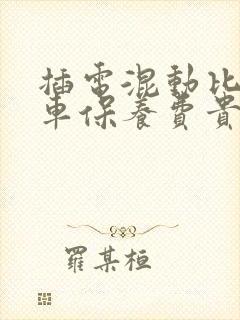 插電混動比
車保養費貴
羅某桓